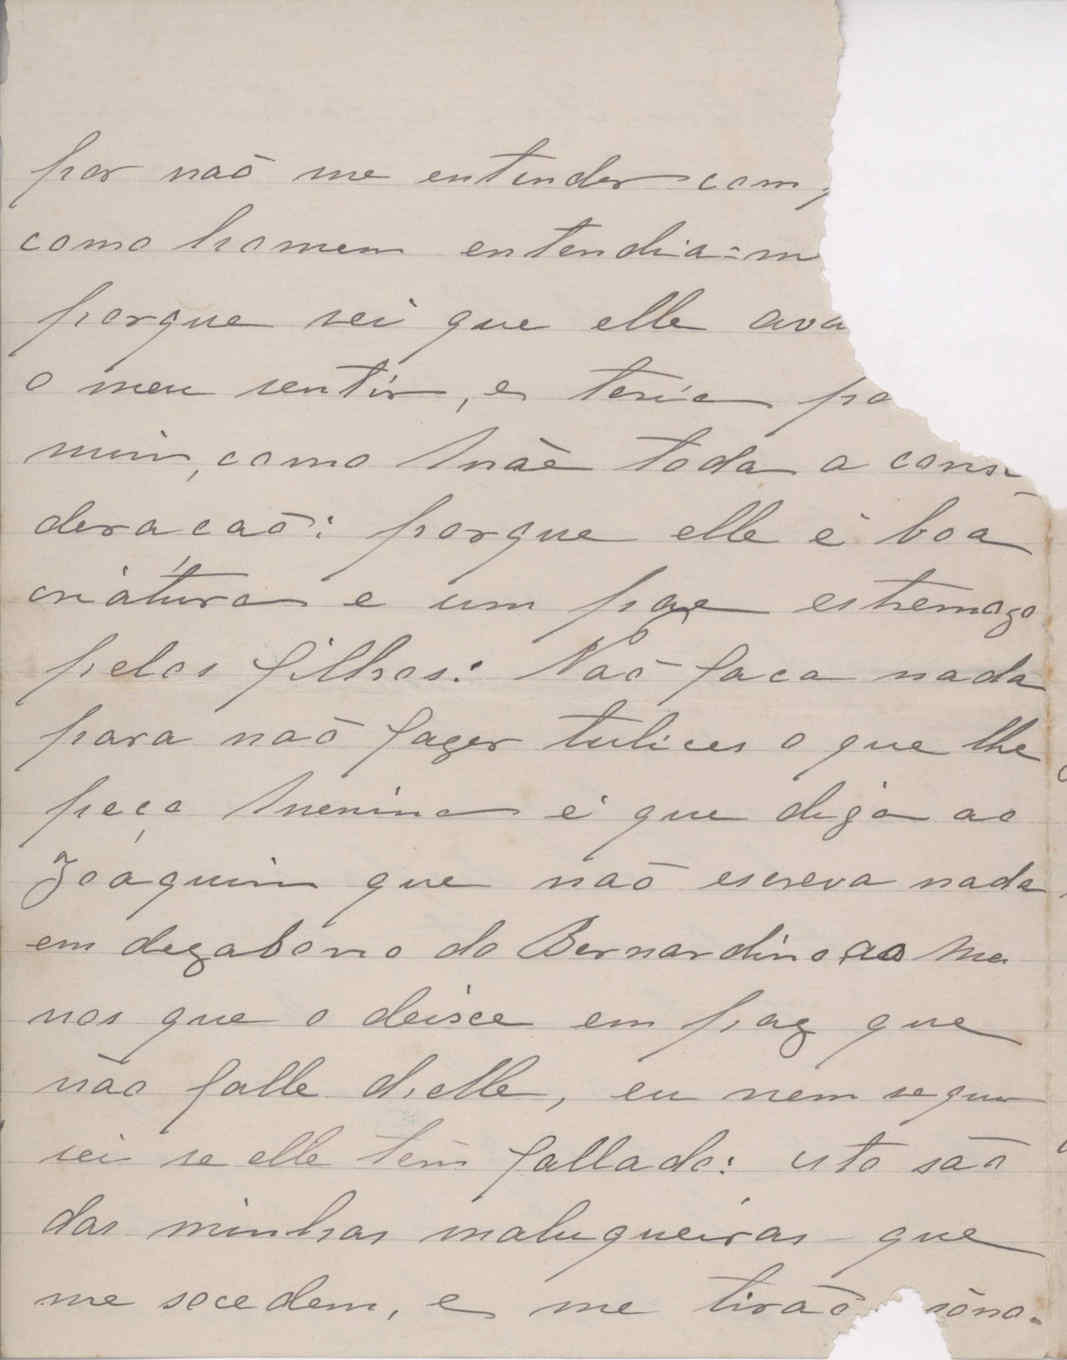 por naõ me entender com
como homem entendia=m
porque sei que elle ava
o meu sentir, e teria pa
mim, como Mãe toda a consi
deracaõ: porque elle é boa
criátura e um pae estremozo
pelos filhos: Naõ faca nada
para naõ fazer tulices o que lhe
peço Menina é que diga ao
Joaquim que naõ escreva nada
em dezabono do Bernardino ao Me
nos que o deisce em paz que
não falle d'elle, eu nem sequer
sei se elle tem fallado: isto saõ
das minhas maluqueiras que
me socedem, e me tiraõ sôno.